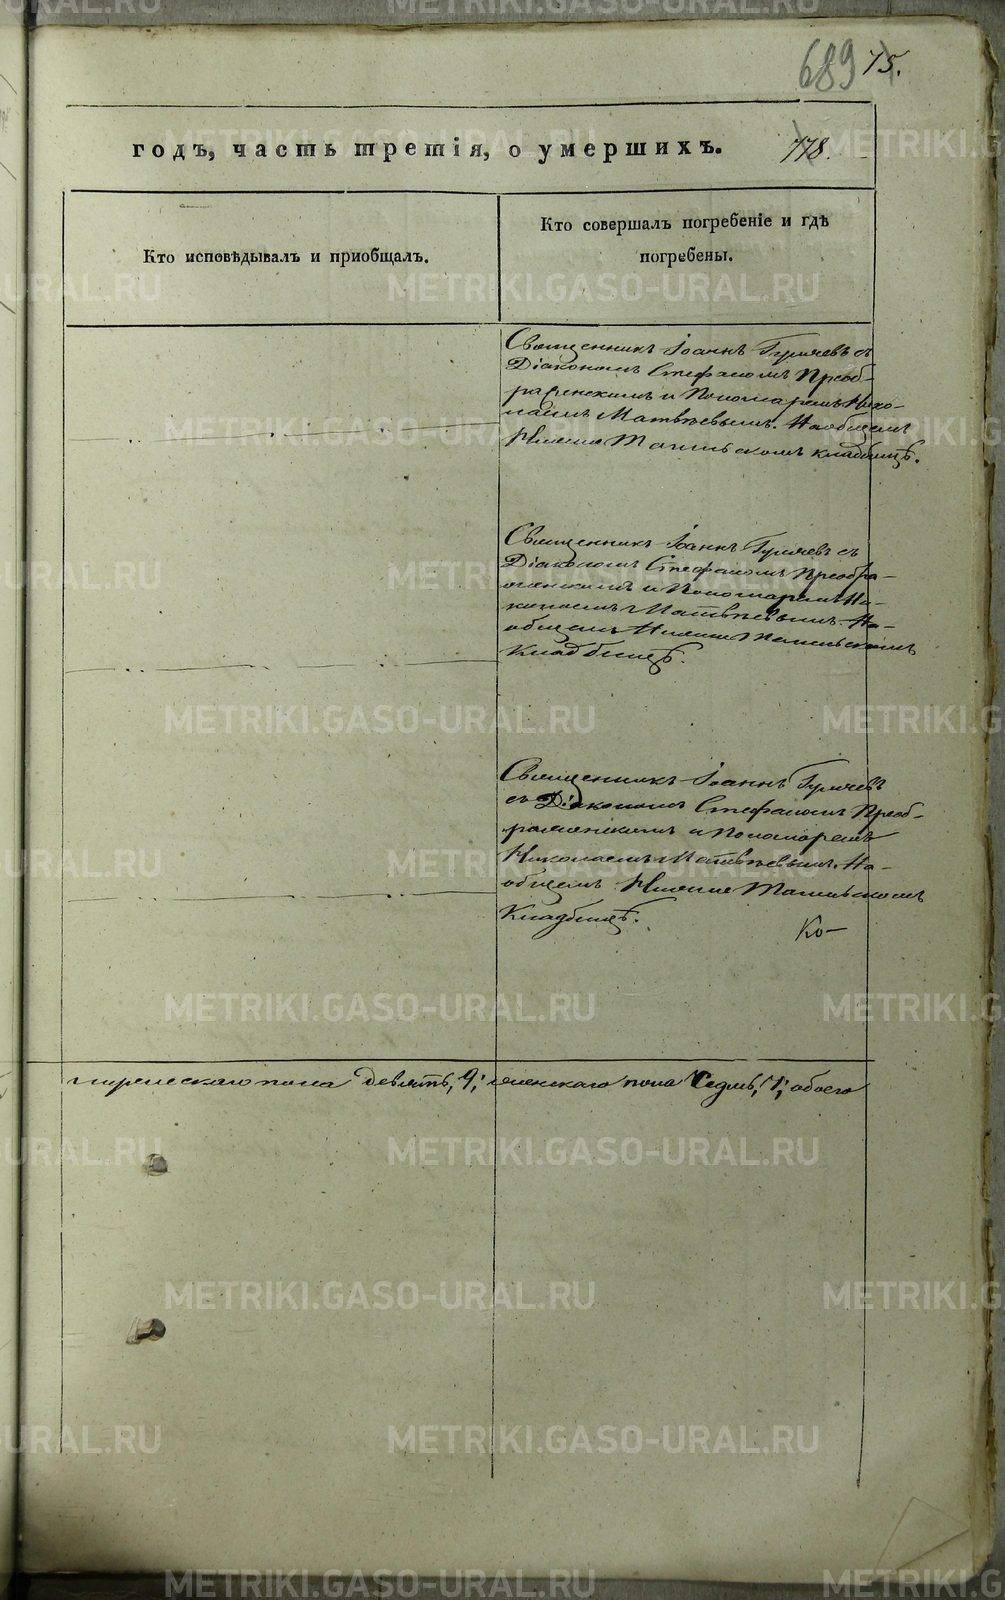 689 75.
годъ, часть третія, о умершихъ. 778.
Кто исповѣдывалъ и пріобщалъ.
Кто совершалъ погребеніе и гдѣ
погребены.
Священникъ Іоаннъ Гуляевъ съ
Діакономъ Стефаномъ Преоб-
раженскимъ и Пономаремъ Нико-
лаемъ Матвѣевымъ. На общемъ
Нижне Тагильскомъ кладбищѣ.
Священникъ Іоаннъ Гуляевъ съ
Діакономъ Стефаномъ Преобра-
женскимъ и Пономаремъ Ни-
колаемъ Матвѣевымъ. На-
общемъ Нижне Тагильскомъ
Кладбищѣ.
Священникъ Іоаннъ Гуляевъ
съ Діакономъ Стефаномъ Преоб-
раженскимъ и Пономаремъ
Николаемъ Матвѣевымъ. На-
общемъ Нижне Тагильскомъ
Кладбищѣ.
Ко-
мужескаго пола девять, 9; женскаго пола Седмь, 7; обоего
METRIKI.GASO-URAL.RU